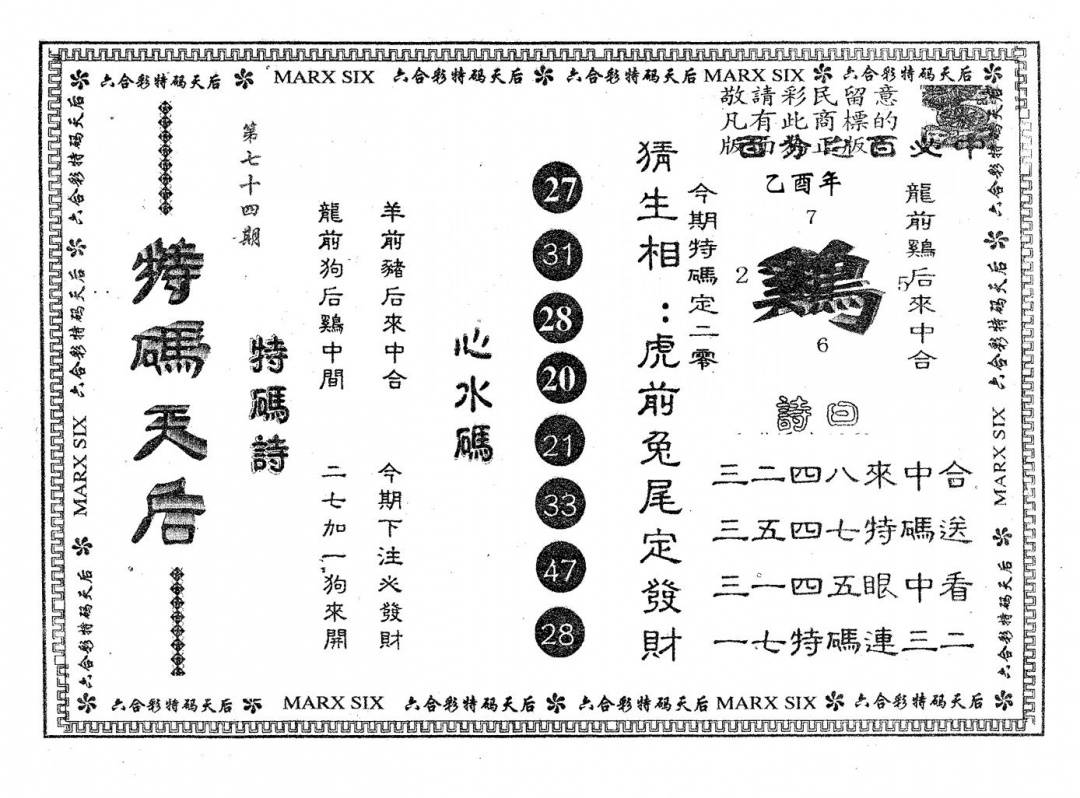 六合彩特码天后 MARX SIX 六合彩特码天后 六合彩特码天后 MARX SIX 六合彩特码天后
敬請彩民留意
凡有此商標的
百分之百必中
乙酉年
7
2
鷄
5
6
龍前鷄后來中合
今期特碼定二零
詩曰
三二四八來中合
三五四七特碼送
三一四五眼中看
一七特碼連三二
猜生相：虎前兔尾定發財
27
31
28
20
21
33
47
28
心水碼
羊前豬后來中合
今期下注必發財
龍前狗后鷄中間
二七加一狗來開
特碼詩
第七十四期
特碼天后
六合彩特码天后 六合彩特码天后 MARX SIX 六合彩特码天后
六合彩特码天后 六合彩特码天后 MARX SIX 六合彩特码天后
六合彩特码天后 MARX SIX 六合彩特码天后 六合彩特码天后 MARX SIX 六合彩特码天后